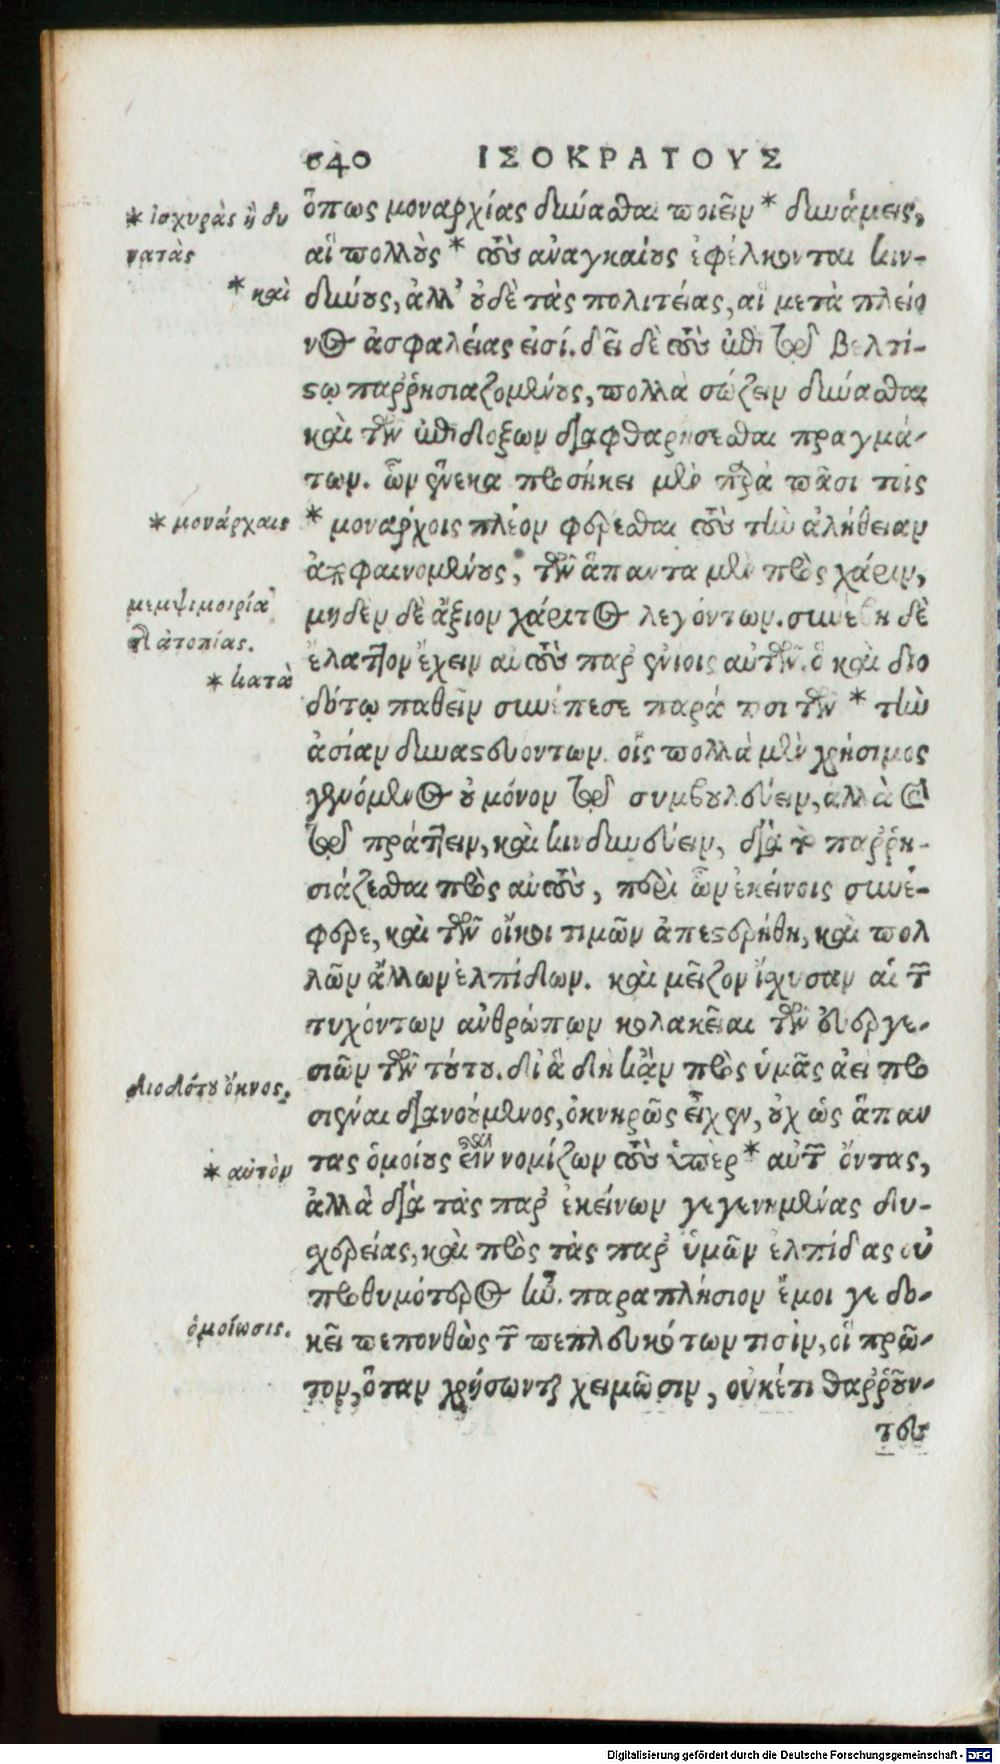 640 ΙΣΟΚΡΑΤΟΥΣ
* ἰσχυρὰς ἢ δυ
νατὰς
* καὶ
* μονάρχαις
μεμψιμοιρία
ἀτοπίας.
* κατὰ
Διοδότου ὄκνος.
* αὐτὸν
ὁμοίωσις.
ὅπως μοναρχίας δύνασθαι ποιεῖν * δυνάμεις,
αἳ πολλοὺς * τοὺς ἀναγκαίους ἐφέλκονται κιν-
δύνους, ἀλλ' οὐδὲ τὰς πολιτείας, αἳ μετὰ πλείο
νος ἀσφαλείας εἰσί. δεῖ δὲ τοὺς ἐπὶ τῷ βελτί-
στῳ παρρησιαζομένους, πολλὰ σώζειν δύνασθαι
καὶ τῶν ἐπιδόξων διαφθαρήσεσθαι πραγμά-
των. ὧν ἕνεκα προσήκει μὲν παρὰ πᾶσι τοῖς
* μονάρχοις πλέον φέρεσθαι τοὺς τὴν ἀλήθειαν
ἀποφαινομένους, τῶν ἅπαντα μὲν πρὸς χάριν,
μηδὲν δὲ ἄξιον χάριτος λεγόντων. συνέβη δὲ
ἔλαττον ἔχειν αὐτοὺς παρ' ἐνίοις αὐτῶν. ὃ καὶ Διο
δότῳ παθεῖν συνέπεσε παρά τισι τῶν * τὴν
ἀσίαν δυναστευόντων. οἷς πολλὰ μὲν χρήσιμος
γενόμενος οὐ μόνον τῷ συμβουλεύειν, ἀλλὰ καὶ
τῷ πράττειν, καὶ κινδυνεύειν, διὰ τὸ παρρη-
σιάζεσθαι πρὸς αὐτοὺς, περὶ ὧν ἐκείνοις συνέ-
φερε, καὶ τῶν οἴκοι τιμῶν ἀπεστερήθη, καὶ πολ
λῶν ἄλλων ἐλπίδων. καὶ μεῖζον ἴσχυσαν αἱ τῶν
τυχόντων ἀνθρώπων κολακεῖαι τῶν εὐεργε-
σιῶν τῶν τούτου. διὰ δὴ καὶ πρὸς ὑμᾶς ἀεὶ προ
σιέναι διανοούμενος, ὀκνηρῶς εἶχεν, οὐχ ὡς ἅπαν
τας ὁμοίους εἶναι νομίζων τοὺς ὑπὲρ * αὐτῶν ὄντας,
ἀλλὰ διὰ τὰς παρ' ἐκείνων γεγενημένας δυ-
σχερείας, καὶ πρὸς τὰς παρ' ὑμῶν ἐλπίδας οὐ
προθυμότερος ἦν. παραπλήσιον ἔμοι γε δο-
κεῖ πεπονθὼς τῶν πεπλευκότων τισὶν, οἳ πρῶ-
τον, ὅταν χρήσωνται χειμῶσιν, οὐκέτι θαρροῦν-
τες
Digitalisierung gefördert durch die Deutsche Forschungsgemeinschaft - DFG